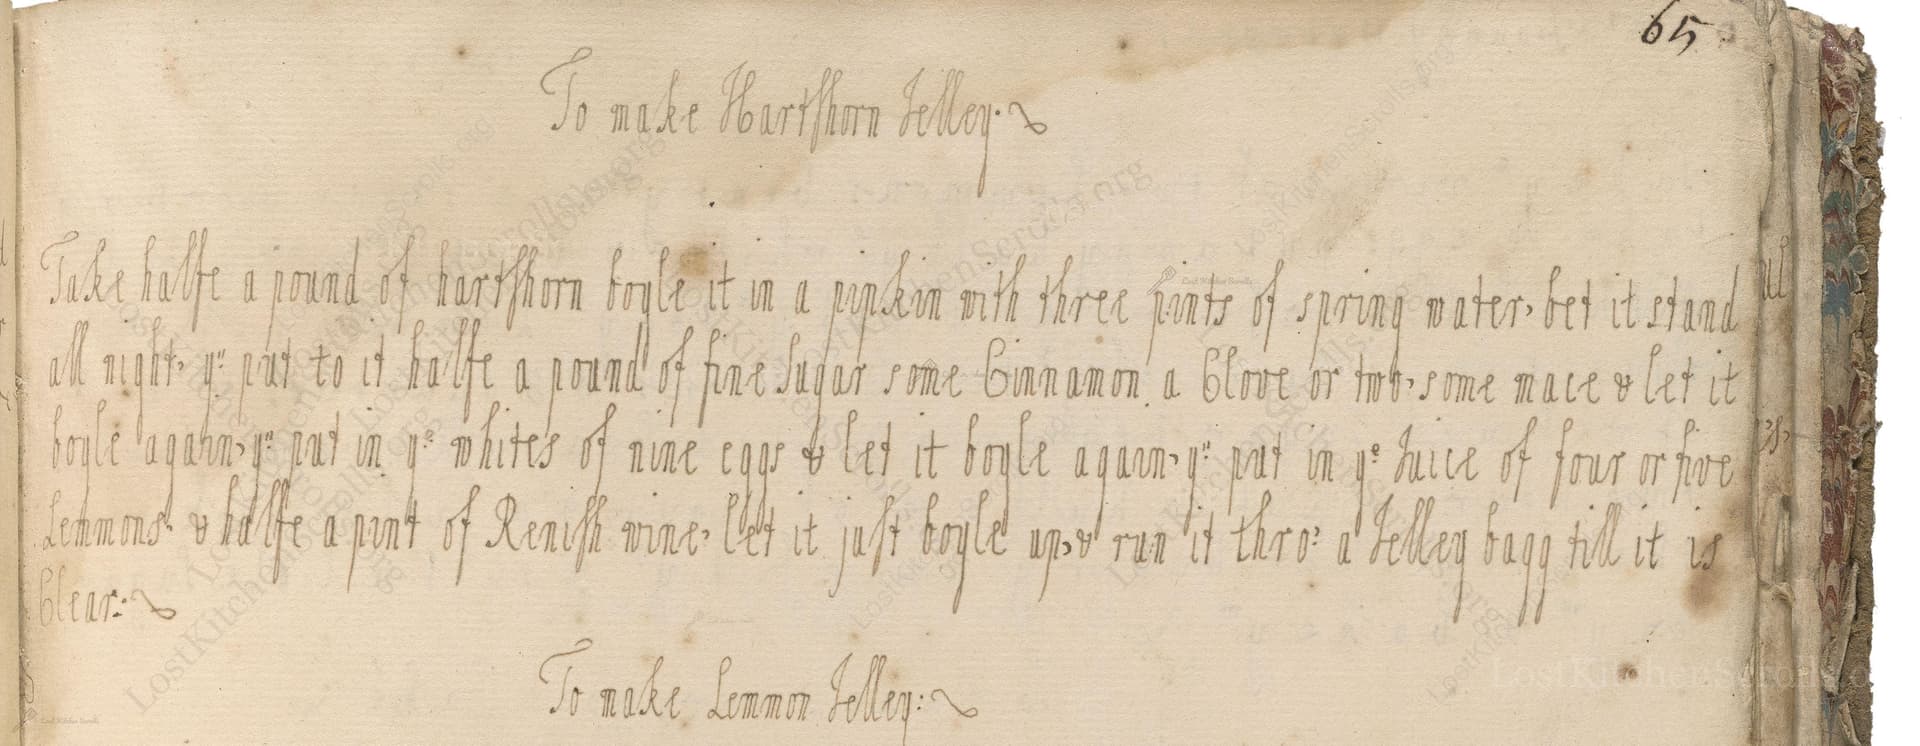 65
To make Hartshorn Jelley.
Take halfe a pound of hartshorn boyle it in a pipkin with three pints of spring water, let it stand
all night, yn put to it halfe a pound of fine Sugar some Cinnamon a Clove or two, some mace & let it
boyle again, yn put in ye whites of nine eggs & let it boyle again, yn put in ye Juice of four or five
Lemmons, & halfe a pint of Renish wine, let it just boyle up, & run it thro' a Jelley bagg till it is
Clear:
To make Lemmon Jelley:
LostKitchenScrolls.org